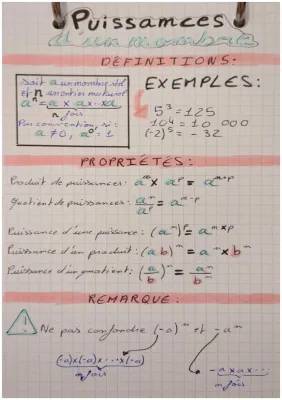 Puissances
d'un nombre
DÉFINITIONS:
Soit a un nombre réel
et n un entier naturel
aⁿ = a × a × ... × a
n fois
Par convention, si :
a ≠ 0, a⁰ = 1
EXEMPLES:
5³ = 125
10⁴ = 10 000
(-2)⁵ = - 32
PROPRIÉTÉS:
Produit de puissances: aᵐ × aᵖ = aᵐ⁺ᵖ
Quotient de puissances: aᵐ/aᵖ = aᵐ⁻ᵖ
Puissance d'une puissance: (aᵐ)ᵖ = aᵐˣᵖ
Puissance d'un produit: (ab)ᵐ = aᵐ × bᵐ
Puissance d'un quotient: (a/b)ᵐ = aᵐ/bᵐ
REMARQUE:
! Ne pas confondre (-a)ᵐ et -aᵐ
(-a)×(-a)×...×(-a)
m fois
-a×a×...
m fois